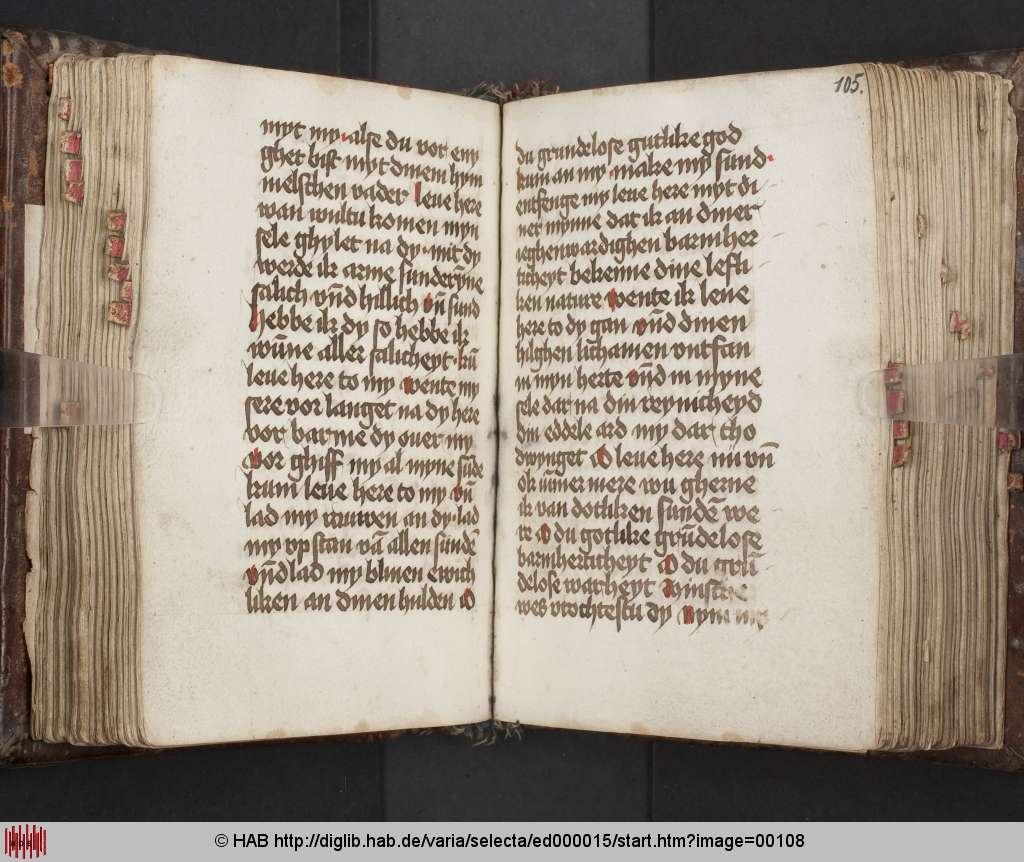 myt my · alse du vor eny
ghet bist myt dinem hym
melschen vader leue here
wan wultu komen myn
sele ghylet na dy · mit dy
werde ik arme sunderȳne
salich vn̄d hillich vn̄ sund
hebbe ik dy so hebbe ik
wūne aller salicheyt · kū
leue here to my wente my
sere vor langet na dy here
vor barme dy ouer my
vor ghiff my al myne sūde
kum leue here to my vn̄
lad my ruwen an dy · lad
my vpstan vā allen sundē
vn̄d lad my bliuen ewich
liken an dinen hulden O
105.
du grundelose gutlike god
kum an my · make my sund ·
entfenge my leue here myt di
ner mynne dat ik an diner
ieghenwardighen barmher
ticheyt bekenne dine lefli
ken nature wente ik leue
here to dy gan vn̄d dinen
hilghen lichamen vntfan
in myn herte vn̄d in myne
sele dar na din reynicheyd
din eddele ard my dar tho
dwynget O leue here nu vn̄
ok ūmer mere wu gherne
ik van dotliken sundē we
re O du gotlike grūdelose
barmherticheyt O du grū
delose warheyt
wes vrochtestu dy Nym my
© HAB http://diglib.hab.de/varia/selecta/ed000015/start.htm?image=00108